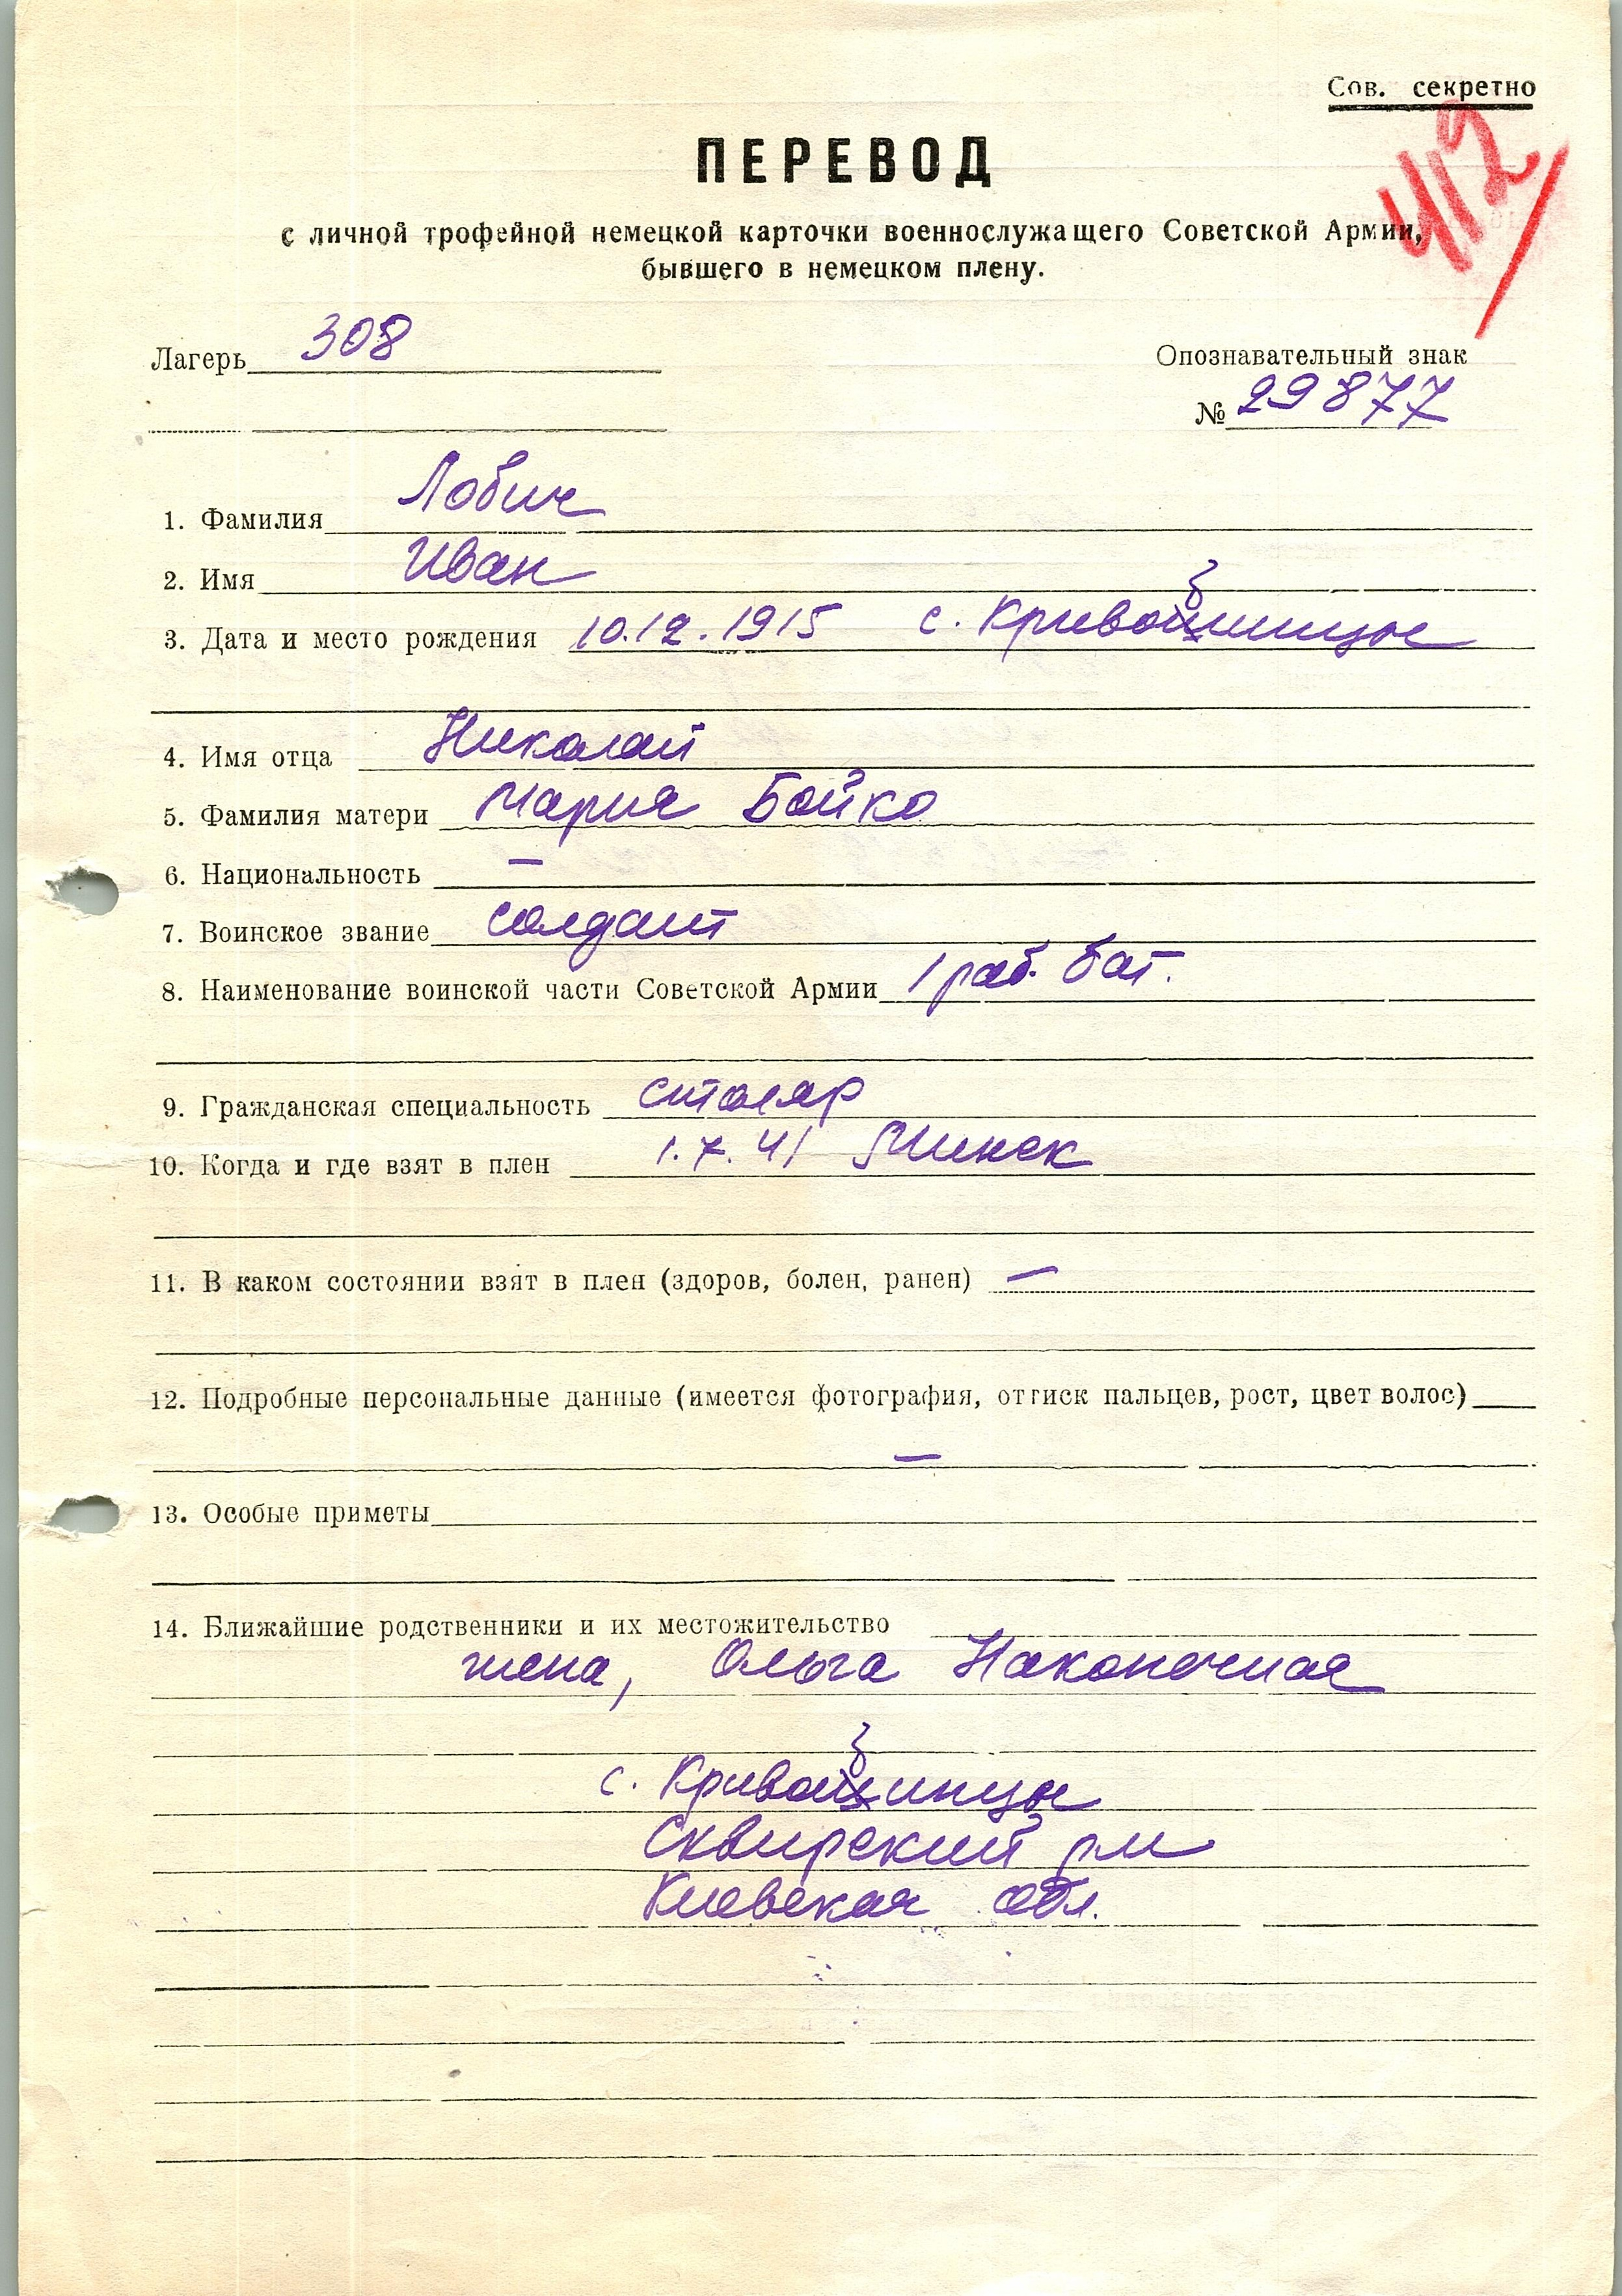 Сов. секретно
412
ПЕРЕВОД
с личной трофейной немецкой карточки военнослужащего Советской Армии,
бывшего в немецком плену.
Лагерь 308
Опознавательный знак
№ 29877
1. Фамилия Лобич
2. Имя Иван
3. Дата и место рождения 10.12.1915 с.
4. Имя отца Николай
5. Фамилия матери Мария Бойко
6. Национальность —
7. Воинское звание солдат
8. Наименование воинской части Советской Армии 1 раб. бат.
9. Гражданская специальность столяр
10. Когда и где взят в плен 1.7.41 Минск
11. В каком состоянии взят в плен (здоров, болен, ранен) —
12. Подробные персональные данные (имеется фотография, оттиск пальцев, рост, цвет волос)
—
13. Особые приметы
14. Ближайшие родственники и их местожительство
жена, Ольга Наконечная
с.
Сквирский р-н
Киевская обл.